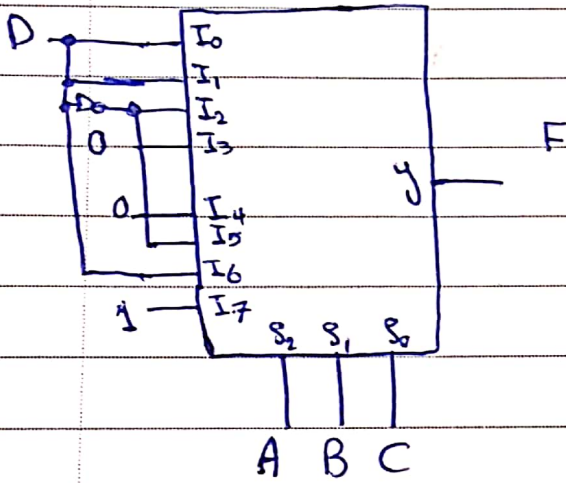 D
I0
I1
I2
0 I3
F
y
0 I4
I5
I6
1 I7
S2 S1 S0
A B C